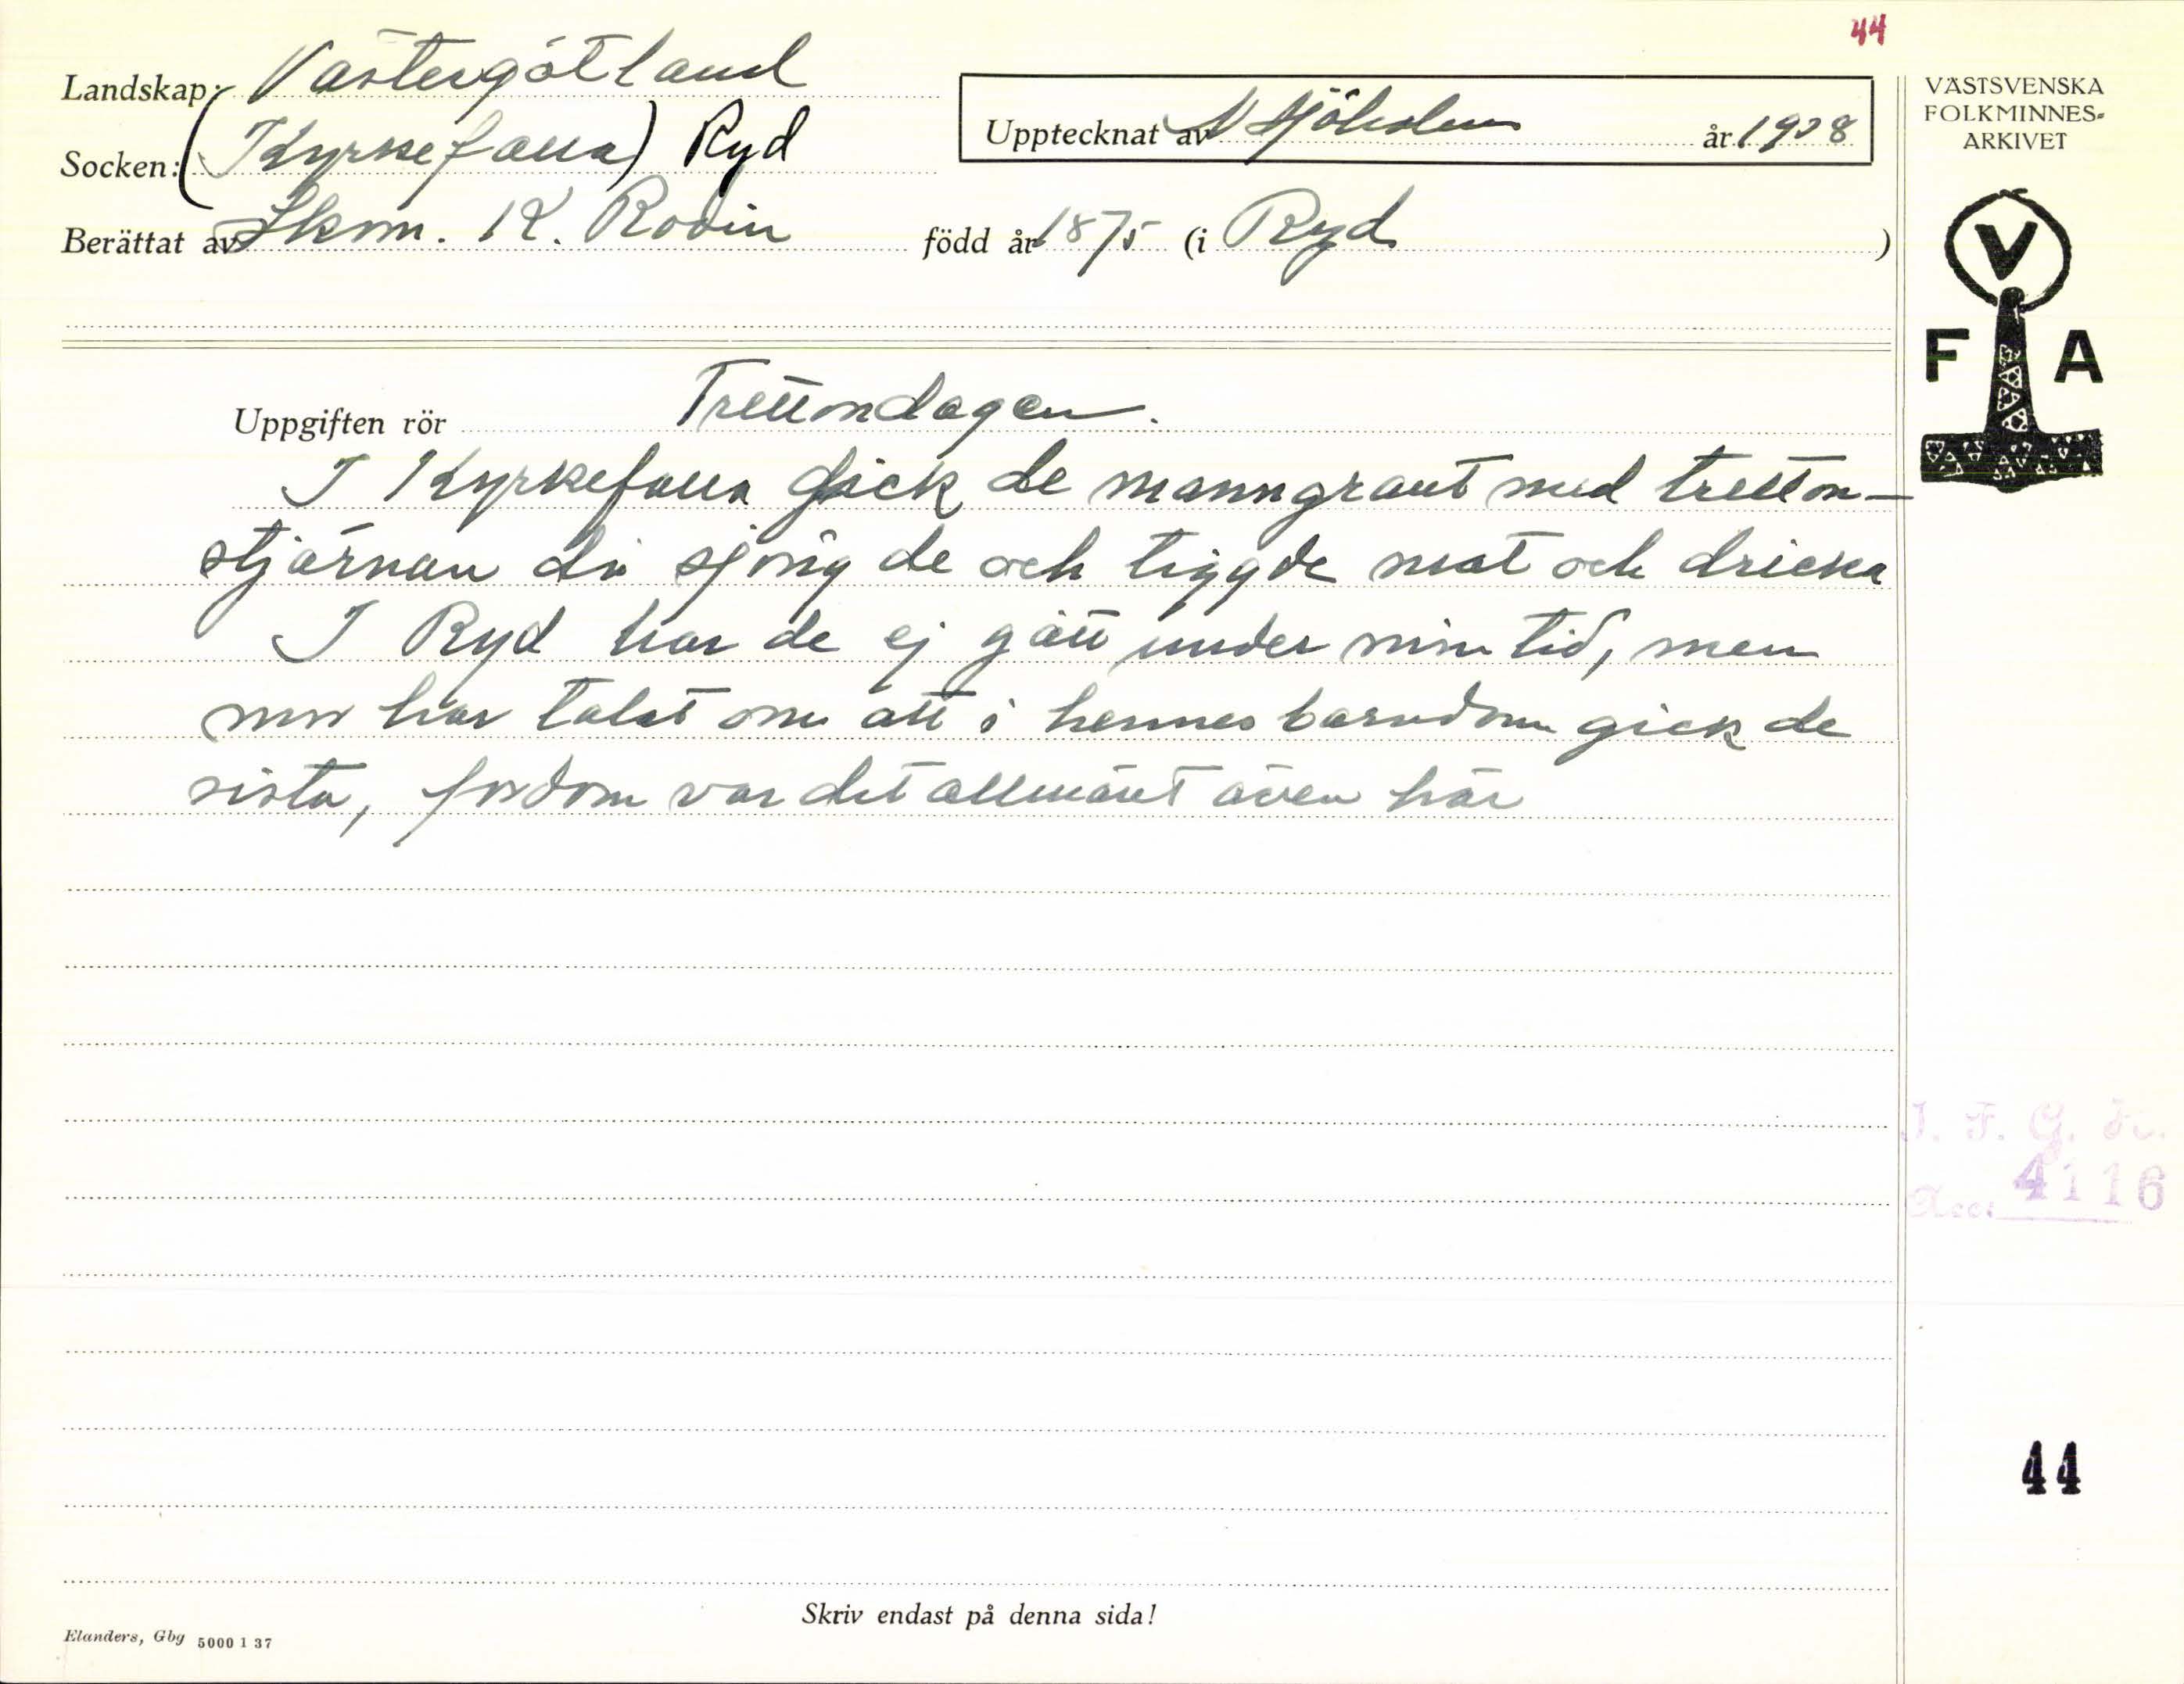 44
Landskap: Västergötland
Socken: (Kyrkefalla) Ryd
Upptecknat av år 1938
Berättat av Skom. K. Rodin född år 1875 (i Ryd)
VÄSTSVENSKA
FOLKMINNES-
ARKIVET
V
F A
Uppgiften rör Trettondagen.
I Kyrkefalla gick de manngrant med tretton-
stjärnan då sjöng de och tiggde mat och dricka
I Ryd har de ej gått under min tid, men
mor har talat om att i hennes barndom gick de
sista, fordom var det allmänt även här
I. F. G. H.
Acc. 4116
44
Skriv endast på denna sida!
Elanders, Gbg 5000 1 37